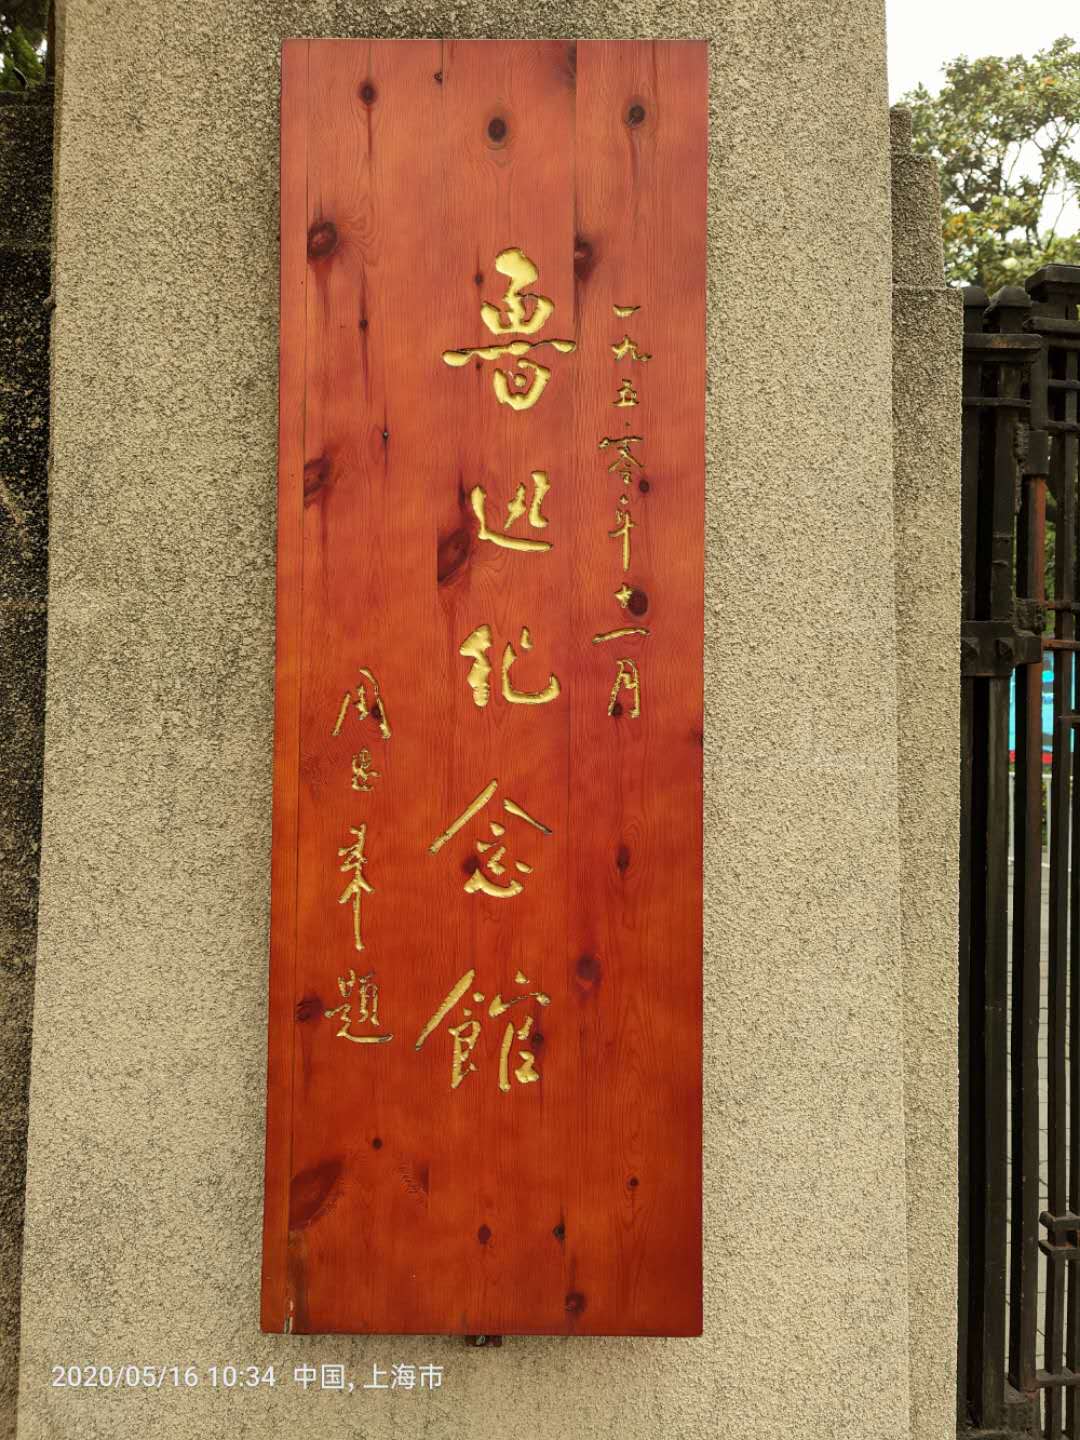 一九五零年十一月
魯迅纪念館
周恩来題
2020/05/16 10:34 中国, 上海市